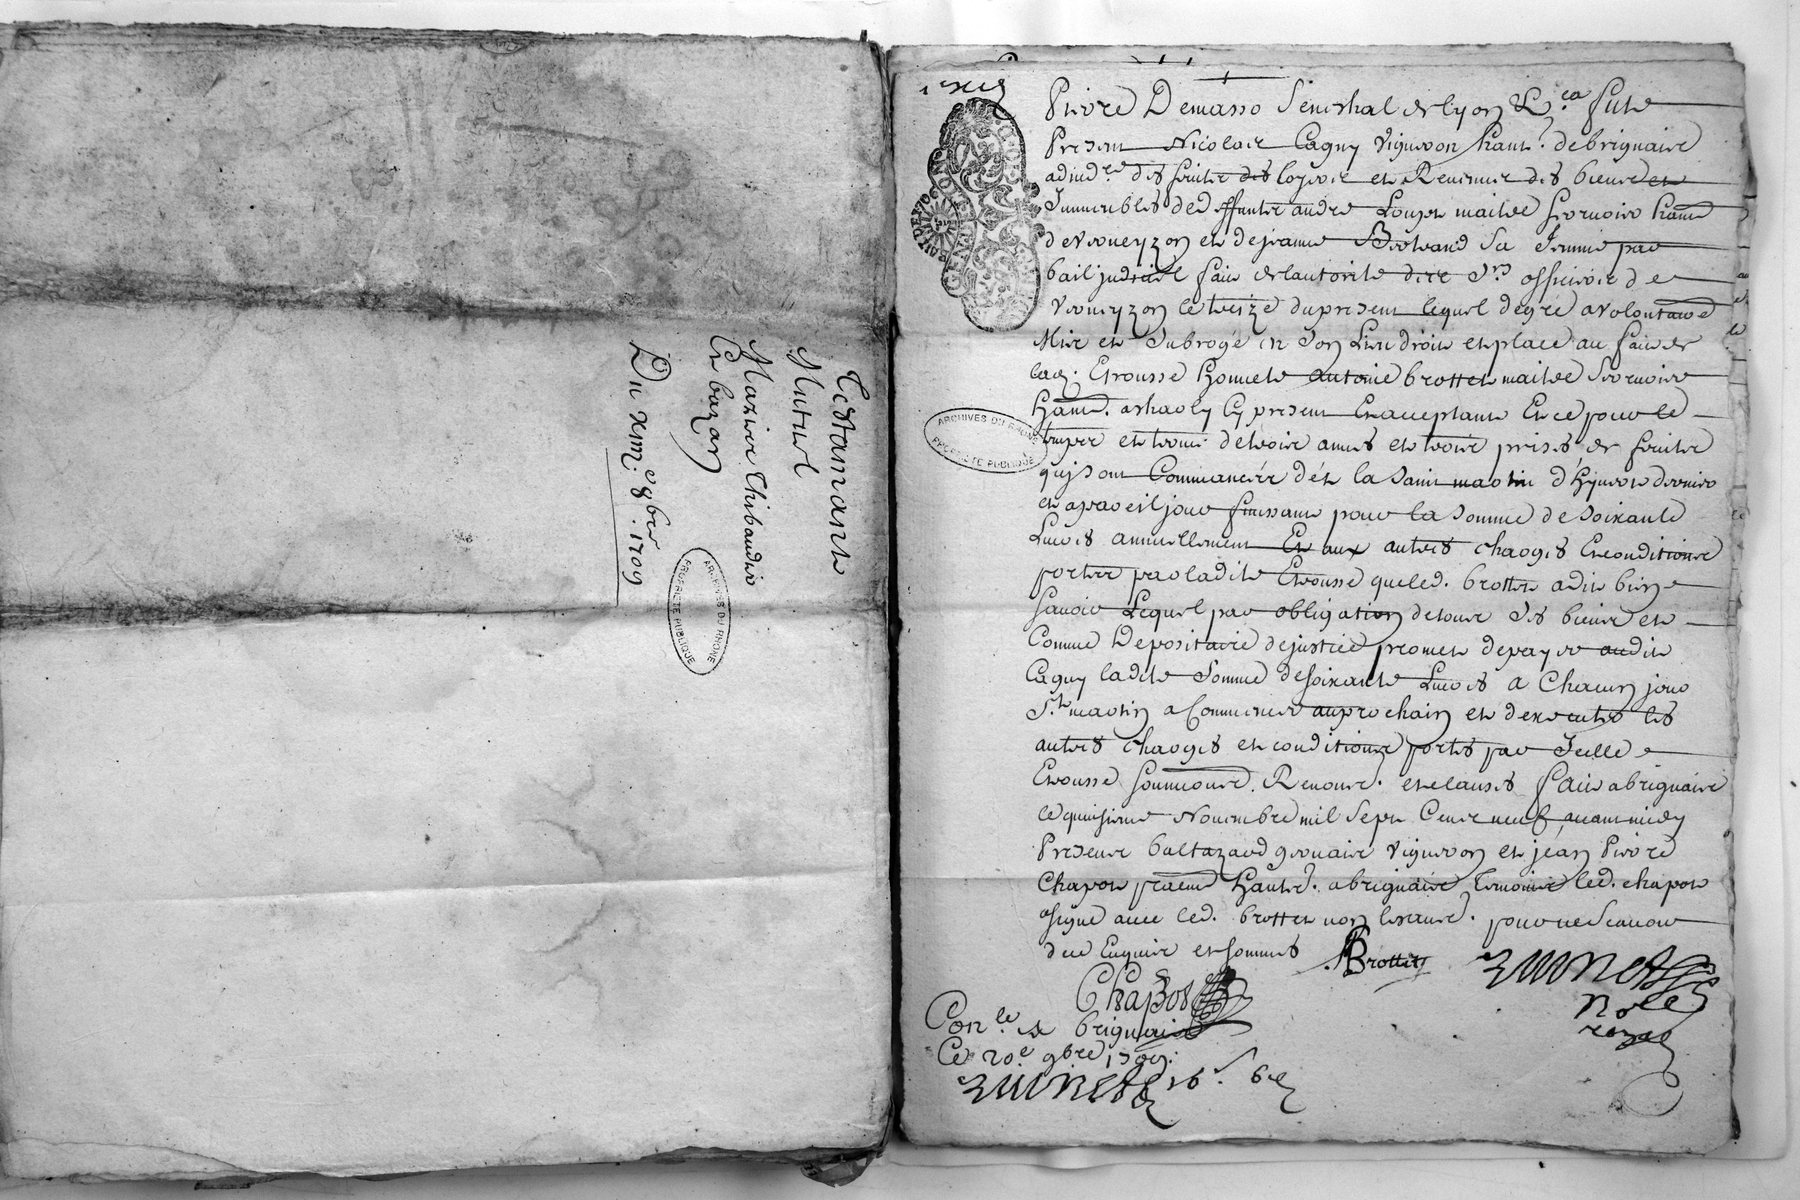 Testamant
Mutuel
Mazier Thibaudier
Et bazan
Du xiiii.e 9bre. 1709
ARCHIVES DU RHONE
PROPRIETE PUBLIQUE
Pierre Demasso Seneschal de lyon & ca fut
Present Nicolas Cagny Vigneron habt. de brignais
adjud.re des fruits des loyers et Revenus des biens et
Immeubles de deffunts andre Loupt maitre
de Vourneyzon et de jeanne Bertrand Sa femme par
bail judiciel fait de lautorite des Srs officiers de
Vourneyzon le treize du present lequel de gré a volontaire
Mis et Subrogé en Son Lieu droit et place au fait de
lad. Etrousse honnete antoine brottet maitre
habt. a charly Cy present et acceptant Et ce pour le
temps et terme de trois années et trois prises de fruits
qui sont Commancées dés la Saint martin d'hyvert dernier
et a pareil jour finissant pour la Somme de Soixante
Livres annuellement Et aux autres charges Et conditions
portées par ladite Etrousse que led. brottet a dit bien
Savoir Lequel par obligation de tous Ses biens et
Comme Depositaire de justice promet de payer audit
Cagny ladite Somme de Soixante Livres a Chacun jour
St. martin a Commencer au prochain et dexecuter les
autres charges et conditions portés par Icelle
Etrousse Soumissions. Renonc. et clauses fait a brignais
le quinzieme Novembre mil Sept Cent neuf avant midy
Presents baltazard gervais Vigneron et jean Pierre
Chapot habts. a brignais temoins led. chapot
a signé avec led. brottet non led. pour ne Scavoir
de ce Enquis et Sommés
Brottet
Chapot
Con.le a brignais
Ce 20.e 9bre 1709.
ARCHIVES DU RHONE
PROPRIETE PUBLIQUE